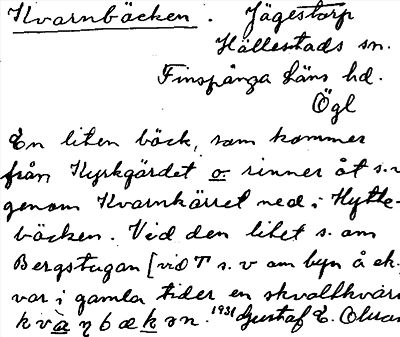 Kvarnbäcken. Jägestorp
Hällestads sn.
Finspånga läns hd.
Ögl
En liten bäck, som kommer
från Kyrkgärdet o rinner åt s.v
genom Kvarnkärret ned i Hytte-
bäcken. Vid den litet s. om
Bergstugan [vid T s. v om byn å ek.
var i gamla tider en skvaltkvarn
1931 Gustaf E. Olsson